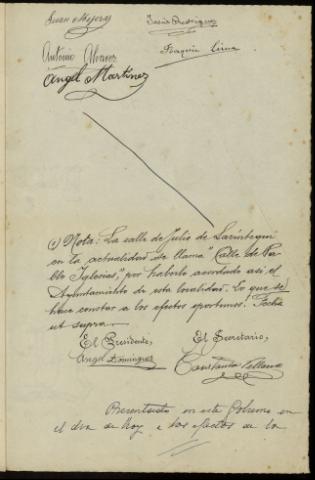 Juan Mijares
Jesús Rodríguez
Antonio Alvarez
Joaquín Lima
Angel Martínez
(1) Nota: La calle de Julio de
en la actualidad se llama "Calle de Pa-
blo Iglesias," por haberlo acordado así el
Ayuntamiento de esta localidad. Lo que se
hace constar a los efectos oportunos. Fecha
ut supra.
El Presidente,
El Secretario,
Angel Domínguez
Presentado en este Gobierno en
el día de hoy a los efectos de la